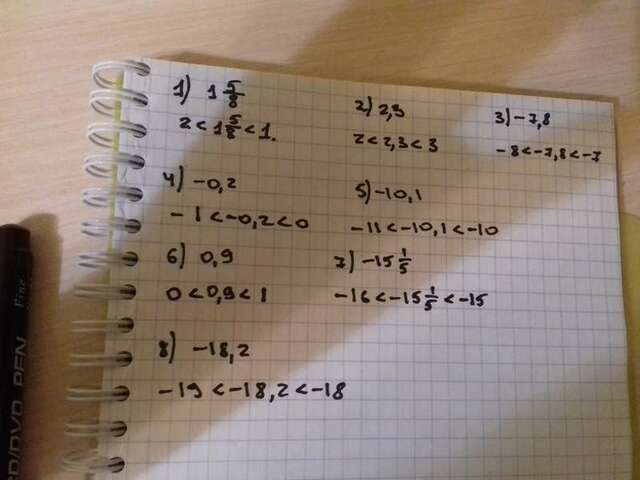 1) 1 5/8
2 < 1 5/8 < 1.
2) 2,3
2 < 2,3 < 3
3) -7,8
-8 < -7,8 < -7
4) -0,2
-1 < -0,2 < 0
5) -10,1
-11 < -10,1 < -10
6) 0,9
0 < 0,9 < 1
7) -15 1/5
-16 < -15 1/5 < -15
8) -18,2
-19 < -18,2 < -18
Fine
CD/DVD PEN